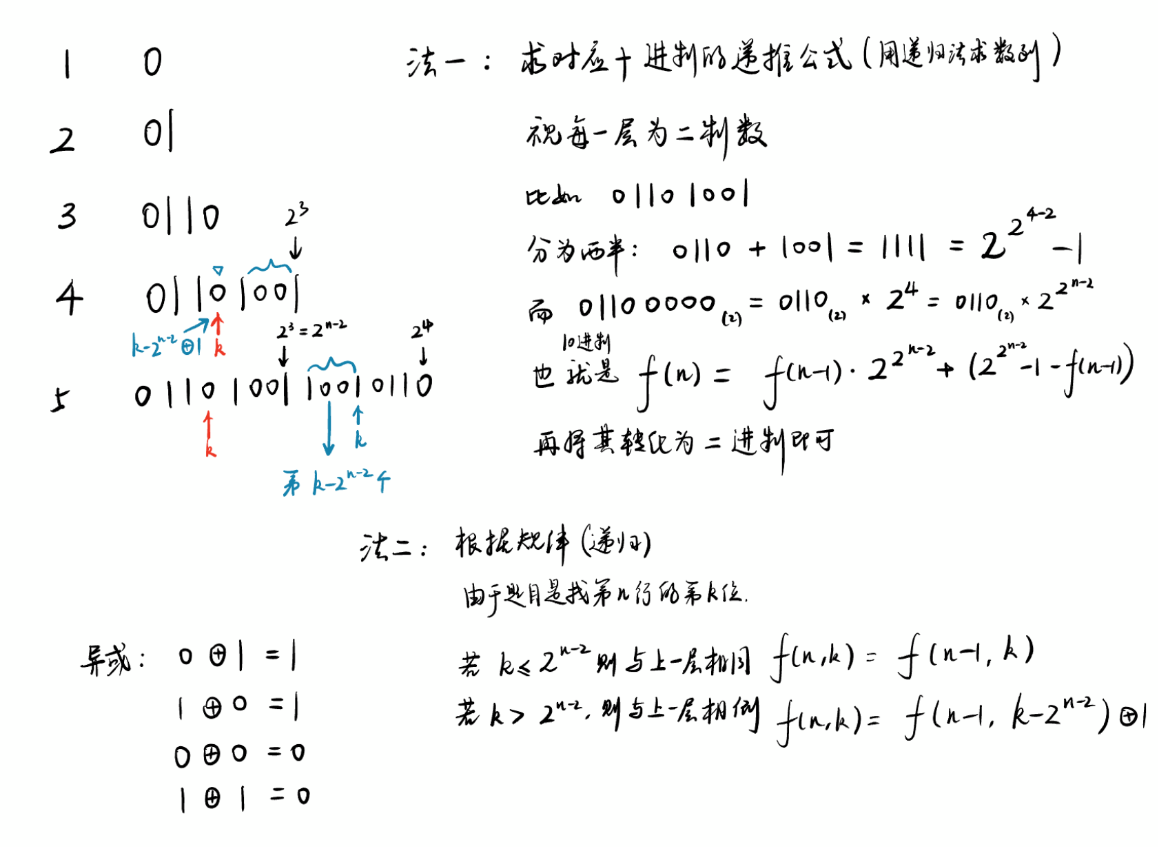 1 0
2 01
3 0110
2³
4 01101001
k-2ⁿ⁻²⊕1 k
2³ = 2ⁿ⁻² 2⁴
5 0110100110010110
k k
第 k-2ⁿ⁻²个
法一：求对应十进制的递推公式(用递归法求数列)
视每一层为二制数
比如 01101001
分为两半：0110 + 1001 = 1111 = 2^(2^(4-2)) - 1
而 01100000₍₂₎ = 0110₍₂₎ × 2⁴ = 0110₍₂₎ × 2^(2^(n-2))
10进制
也就是 f(n) = f(n-1)·2^(2^(n-2)) + (2^(2^(n-2)) -1 - f(n-1))
再将其转化为二进制即可
法二：根据规律(递归)
由于题目是找第n行的第k位.
若 k ≤ 2ⁿ⁻² 则与上一层相同 f(n,k) = f(n-1, k)
若 k > 2ⁿ⁻², 则与上一层相倒 f(n,k) = f(n-1, k-2ⁿ⁻²)⊕1
异或：0 ⊕ 1 = 1
1 ⊕ 0 = 1
0 ⊕ 0 = 0
1 ⊕ 1 = 0